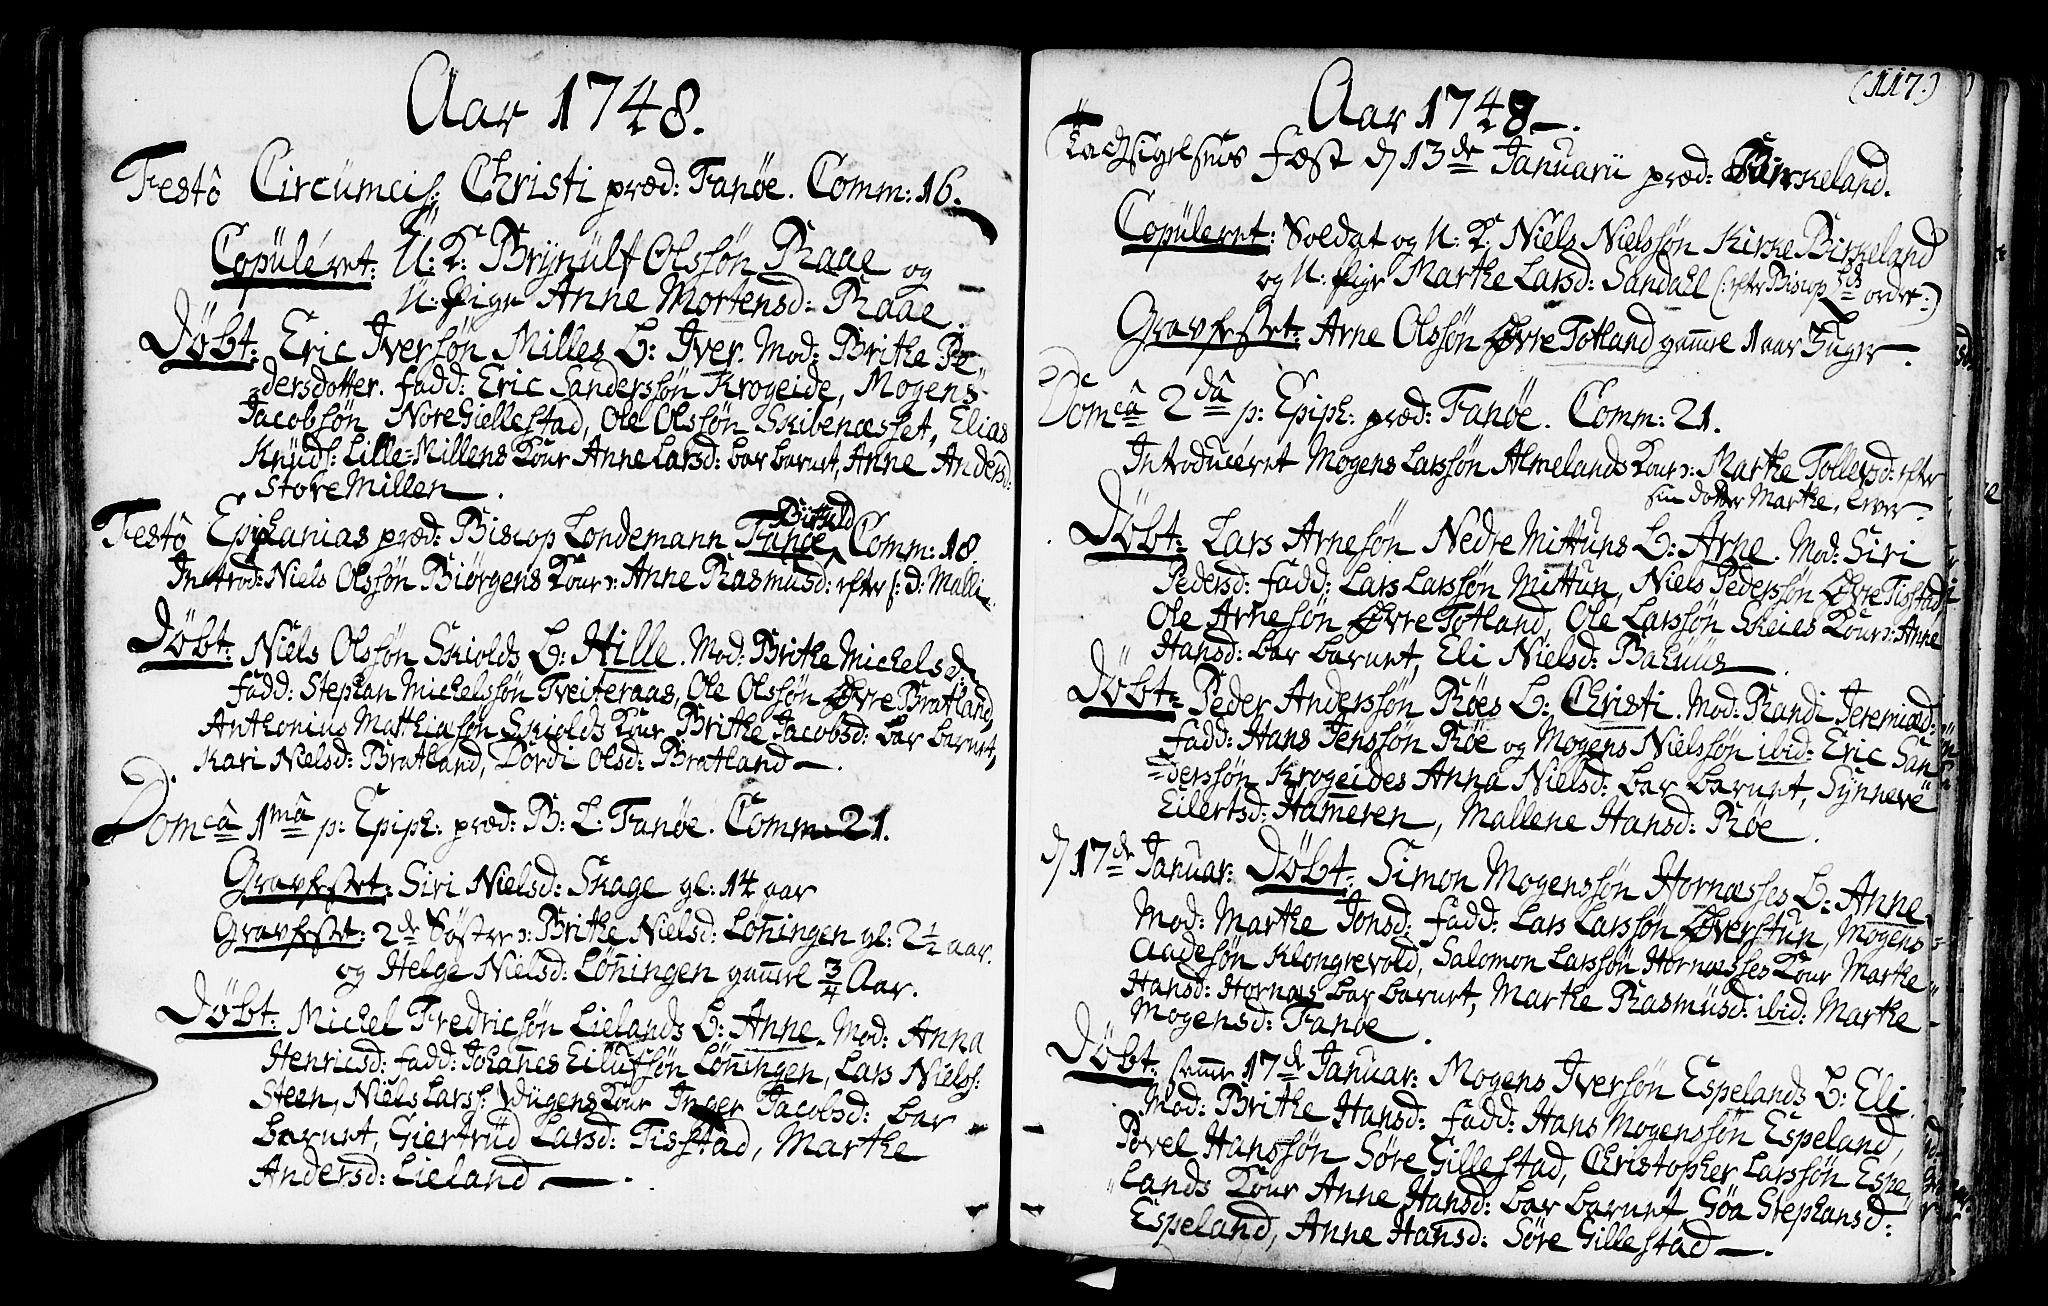 Aar 1748.
Festô Circumcis: Christi præd: Fanöe. Comm: 16.
Copuleret: U: K: Brynulf Olssön Raae og
U: Pige Anne Mortensd: Raae.
Döbt: Eric Iversön Milles b: Iver. Mod: Brithe Pe-
dersdotter. fadd: Eric Sanderssön Krogeide, Mogens
Jacobsön Nore Giellestad, Ole Olssön Skibenæsset, Elias
Knuds: Lille-Millens Kone Anne Larsd: bar barnet, Anne Andersd:
Store Millen.
Festô Epiphanias præd: Biscop Londemann Fanöe Birkeld Comm: 18
Introd: Niels Olssön Biörgens Kone: Anne Rasmusd: efter s: d: Malli
Döbt: Niels Olssön Skiolds b: Hille. Mod: Brithe Michelsd:
fadd: Stephan Michelssön Tveiteraas, Ole Olssön Øvre Bratland,
Anthonius Mathiasön Skiolds Kone Brithe Jacobsd: bar barnet,
Kari Nielsd: Bratland, Dordi Olsd: Bratland.
Domcâ 1mâ p: Epiph: præd: B: L: Fanöe. Comm: 21.
Gravfestet: Siri Nielsd: Skage gl: 14 aar
Gravfestet: 2de Söstre: Brithe Nielsd: Lönningen gl: 2 1/2 aar.
og Helge Nielsd: Lönningen gamle 3/4 Aar.
Döbt: Michel Fredricsön Lielands b: Anne. Mod: Anna
Henricsd: fadd: Johannes Eilufsön Lönningen, Lars Niels:
Steen, Niels Larss: Kone Inger Jacobsd: bar
barnet, Giertrud Larsd: Tisstad, Marthe
Andersd: Lieland.
(117.)
Aar 1748.
Tachsigelsens fest d 13de Januarii præd: Birkeland.
Copuleret: Soldat og U: K: Niels Nielssön Kirke Birkeland
og U: Pige Marthe Larsd: Sandahl (: efter Biscop ordre:)
Gravfestet: Arne Olssön Øvre Totland gamle 1 aar 3 uger.
Domcâ 2dâ p: Epiph: præd: Fanöe. Comm: 21.
Introduceret Mogens Larssön Almelands Kone: Marthe Tollefsd: efter
sin dotter Marthe,
Döbt: Lars Arnesön Nedre Mittuns b: Arne. Mod: Siri
Pedersd: fadd: Lars Larssön Mittun, Niels Pederssön Øvre Tisstad,
Ole Arnesön Øvre Totland, Ole Larssön Skeies Kone: Anne
Hansd: bar barnet, Eli Nielsd: Bahuus.
Döbt: Peder Anderssön Röes b: Christi. Mod: Randi Jeremiæd:
fadd: Hans Jenssön Röe og Mogens Nielssön ibid: Eric San-
derssön Krogeides Anna Nielsd: bar barnet, Synneve
Eilertsd: Hameren, Mallene Hansd: Röe.
d 17de Januar: Döbt: Simon Mogenssön Hornæsses b: Anne.
Mod: Marthe Jonsd: fadd: Lars Larssön Øverstun, Mogens
Aadesön Klongrevold, Salomon Larssön Hornæsses Kone Marthe
Hansd: Hornæs bar barnet, Marthe Rasmusd: ibid: Marthe
Mogensd: Fanöe.
Döbt: samme 17de Januar: Mogens Iversön Espelands b: Eli.
Mod: Brithe Hansd: fadd: Hans Mogenssön Espeland,
Povel Hanssön Söre Gillestad, Christopher Larssön Espe-
lands Kone Anne Hansd: bar barnet Göa Stephansd:
Espeland, Anne Hansd: Söre Gillestad.